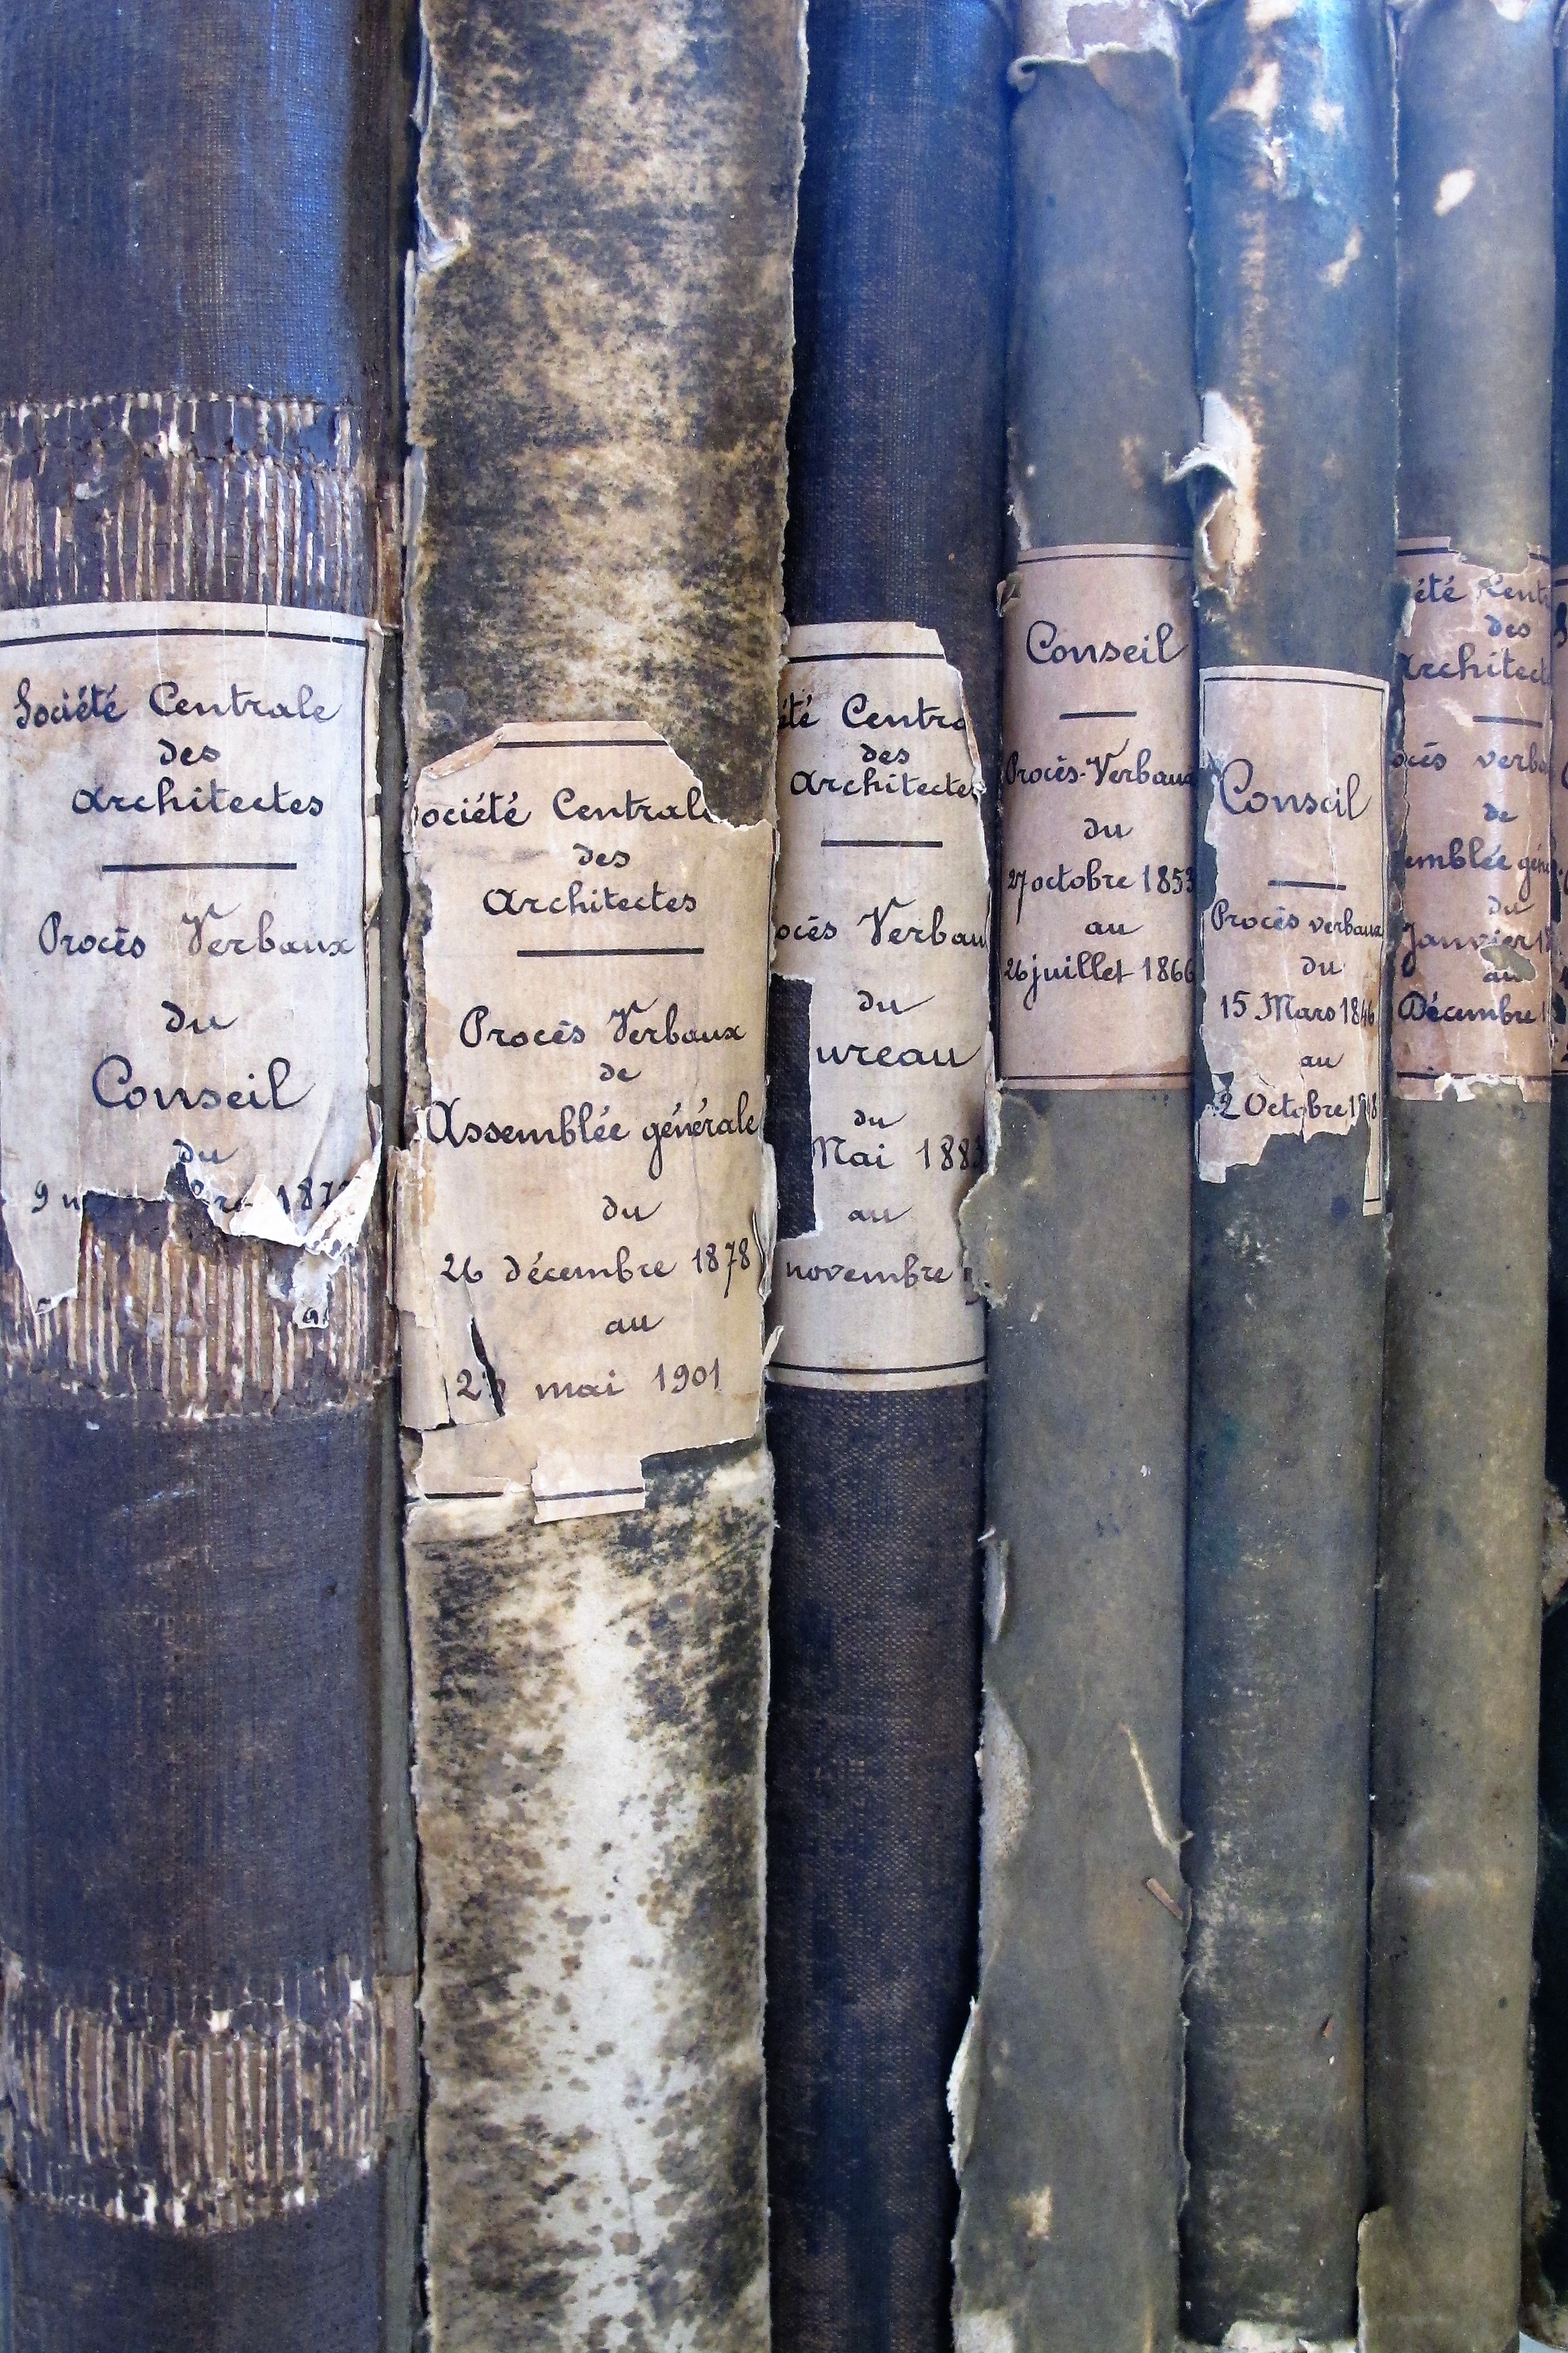 Société Centrale
des
Architectes
Procès Verbaux
du
Conseil
du
9
ociété Centrale
des
Architectes
Procès Verbaux
de
Assemblée générale
du
26 décembre 1878
au
mai 1901
été Centra
des
Architectes
ocès Verbau
du
ureau
du
Mai 188
au
novembre
Conseil
Procès-Verbaux
du
27 octobre 1853
au
26 juillet 1866
Conseil
Procès verbaux
du
15 Mars 1846
au
2 Octobre
été Cent
des
Architect
ocès verba
de
emblée géné
du
Janvier 1
au
Décembre 1